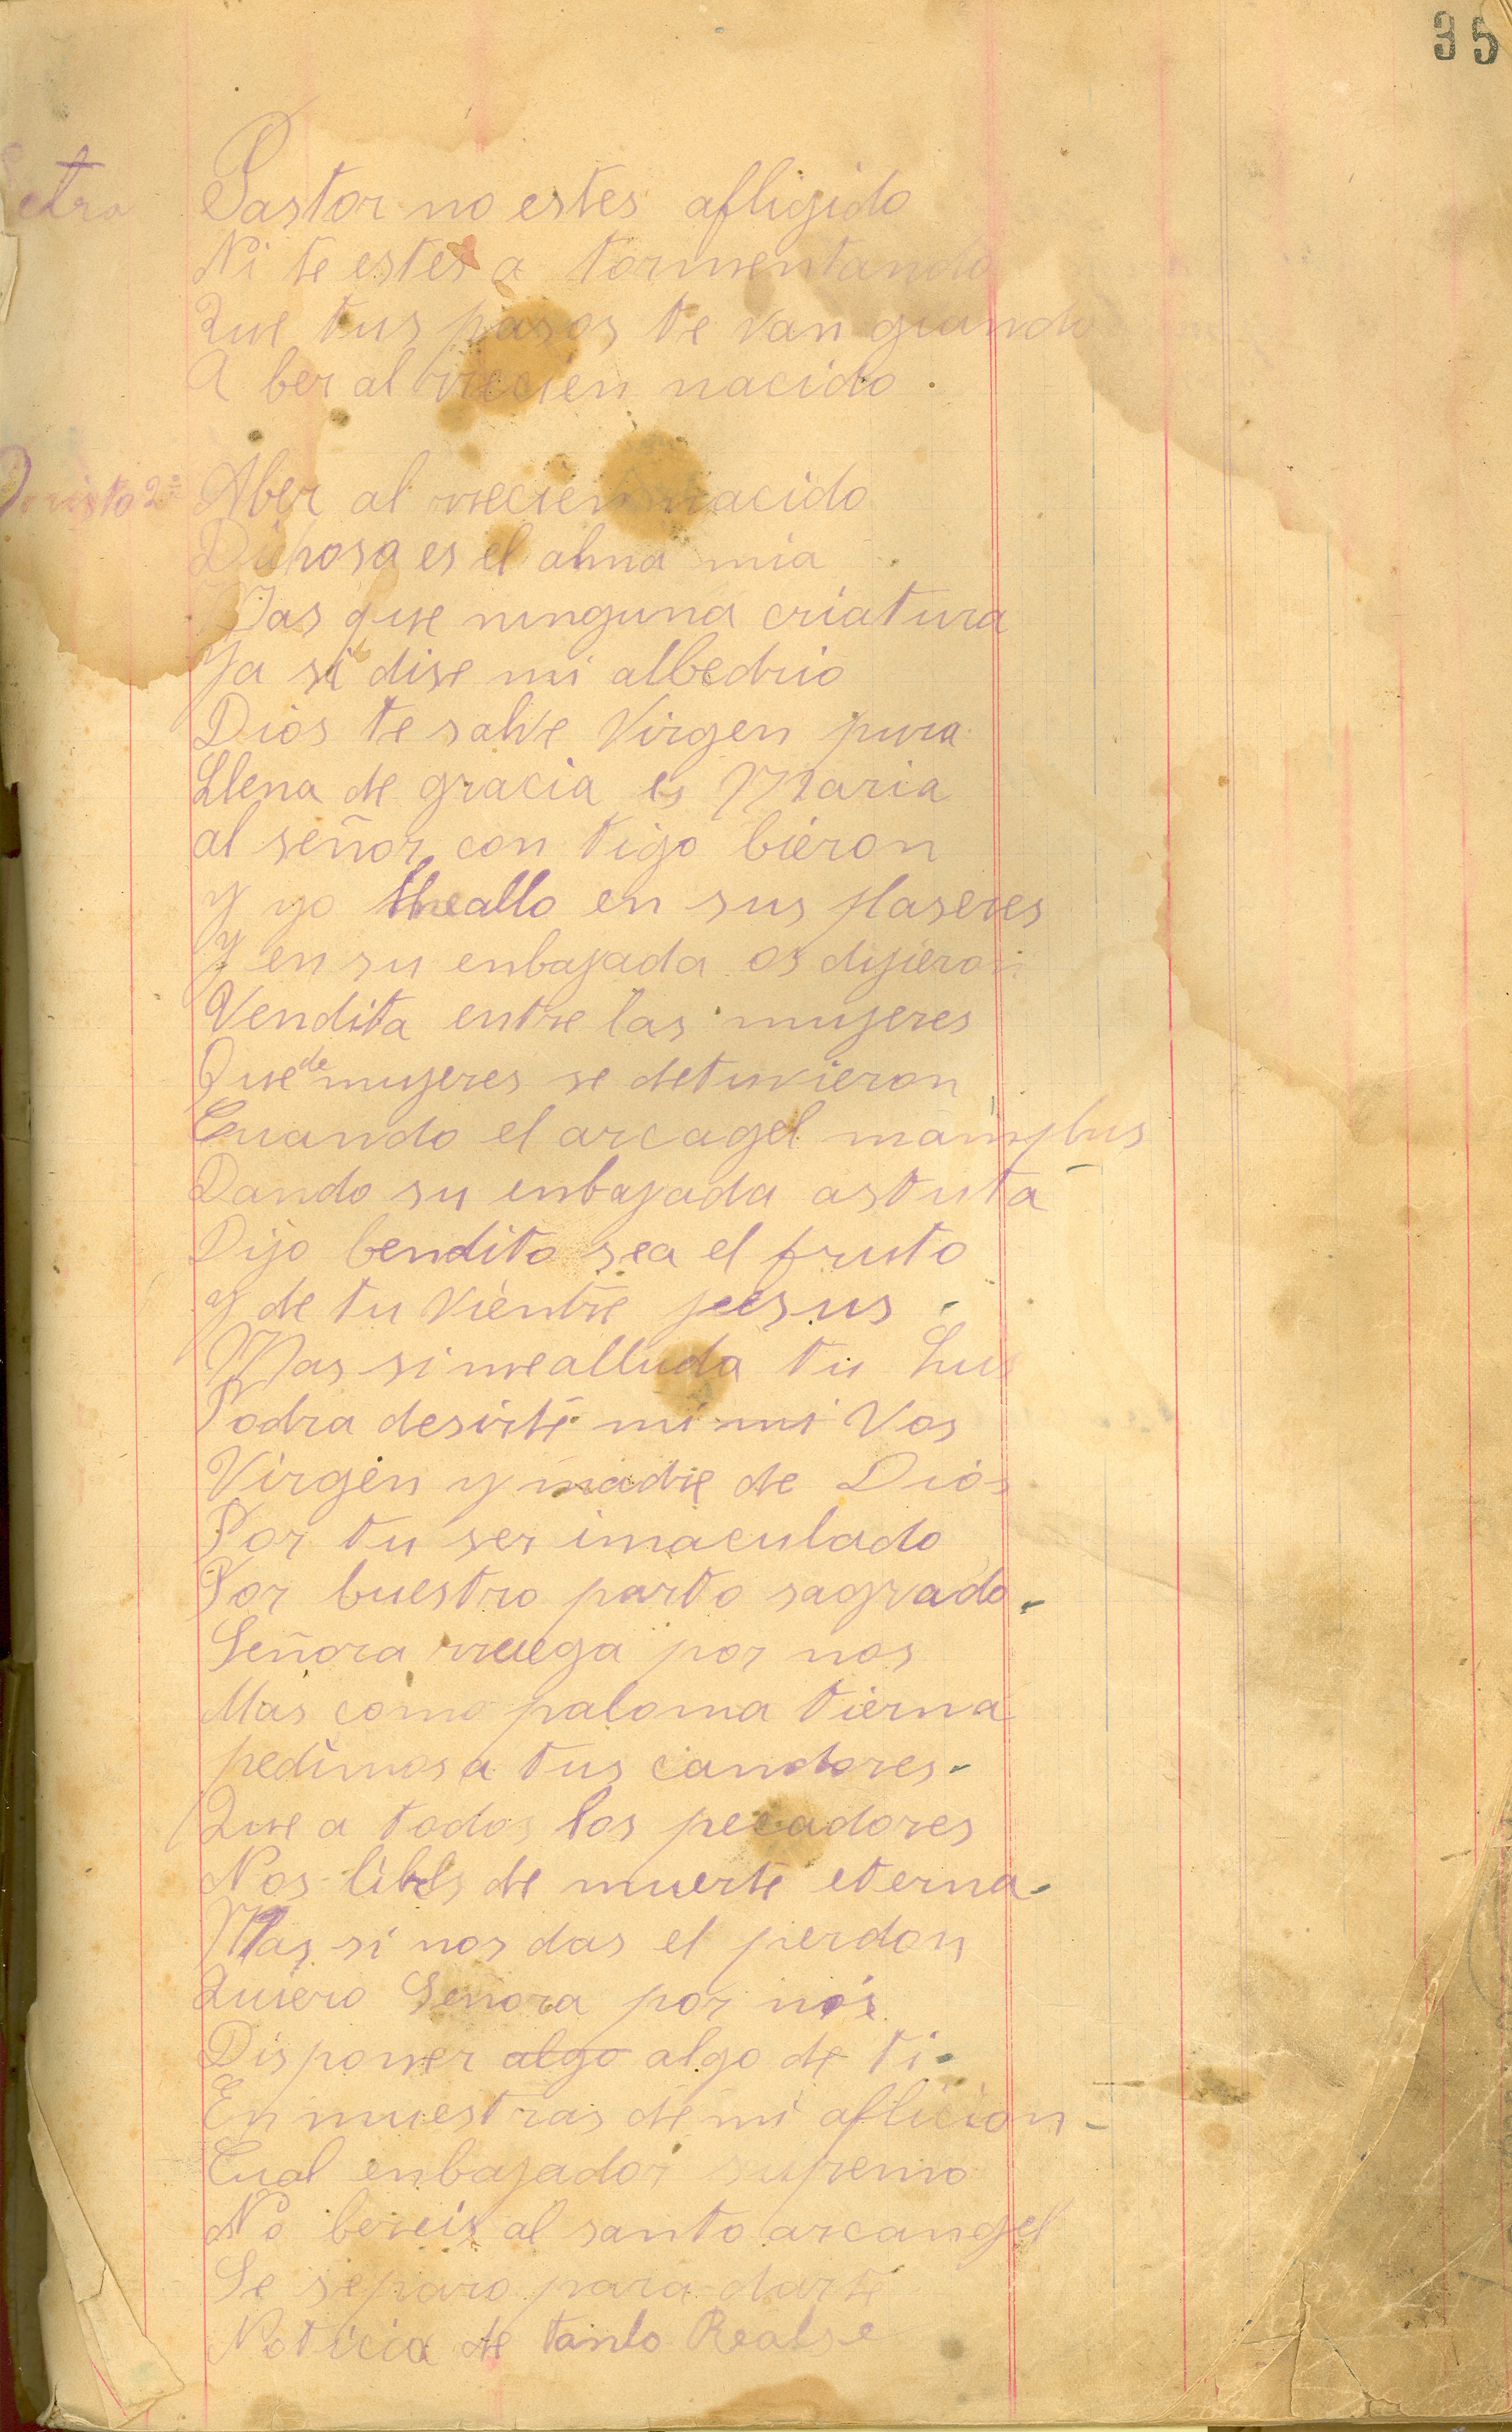 35
Letra Pastor no estes afligido
Ni te estes a tormentando
Que tus pasos te van giando
A ber al rrecien nacido.
2ª Aber al rrecien nacido
Dichosa es el alma mia
Mas que ninguna criatura
Ya si dise mi albedrio
Dios te salve Virgen pura
Llena de gracia es Maria
al señor con tigo bieron
Y yo meallo en sus plaseres
Y en su enbajada os dijieron
Vendita entre las mujeres
Que de mujeres se detuvieron
Cuando el arcagel
Dando su enbajada astuta
Dijo bendito sea el fruto
y de tu vientre jesus -
Mas si mealluda tu Lus
Podra desirte mi mi Vos
Virgen y madre de Dios
Por tu ser imaculado
Por buestro parto sagrado.
Señora rruega por nos
Mas como paloma tierna
pedimos a tus candores.
Que a todos los pecadores
Nos libes de muerte eterna.
Mas si nos das el perdon
Quiero Senora por nos
Disponer algo algo de ti.
En muestras de mi aflicion -
Cual enbajador supremo
No bereis al santo arcangel
Se separo para darte
Noticia de tanto Realse